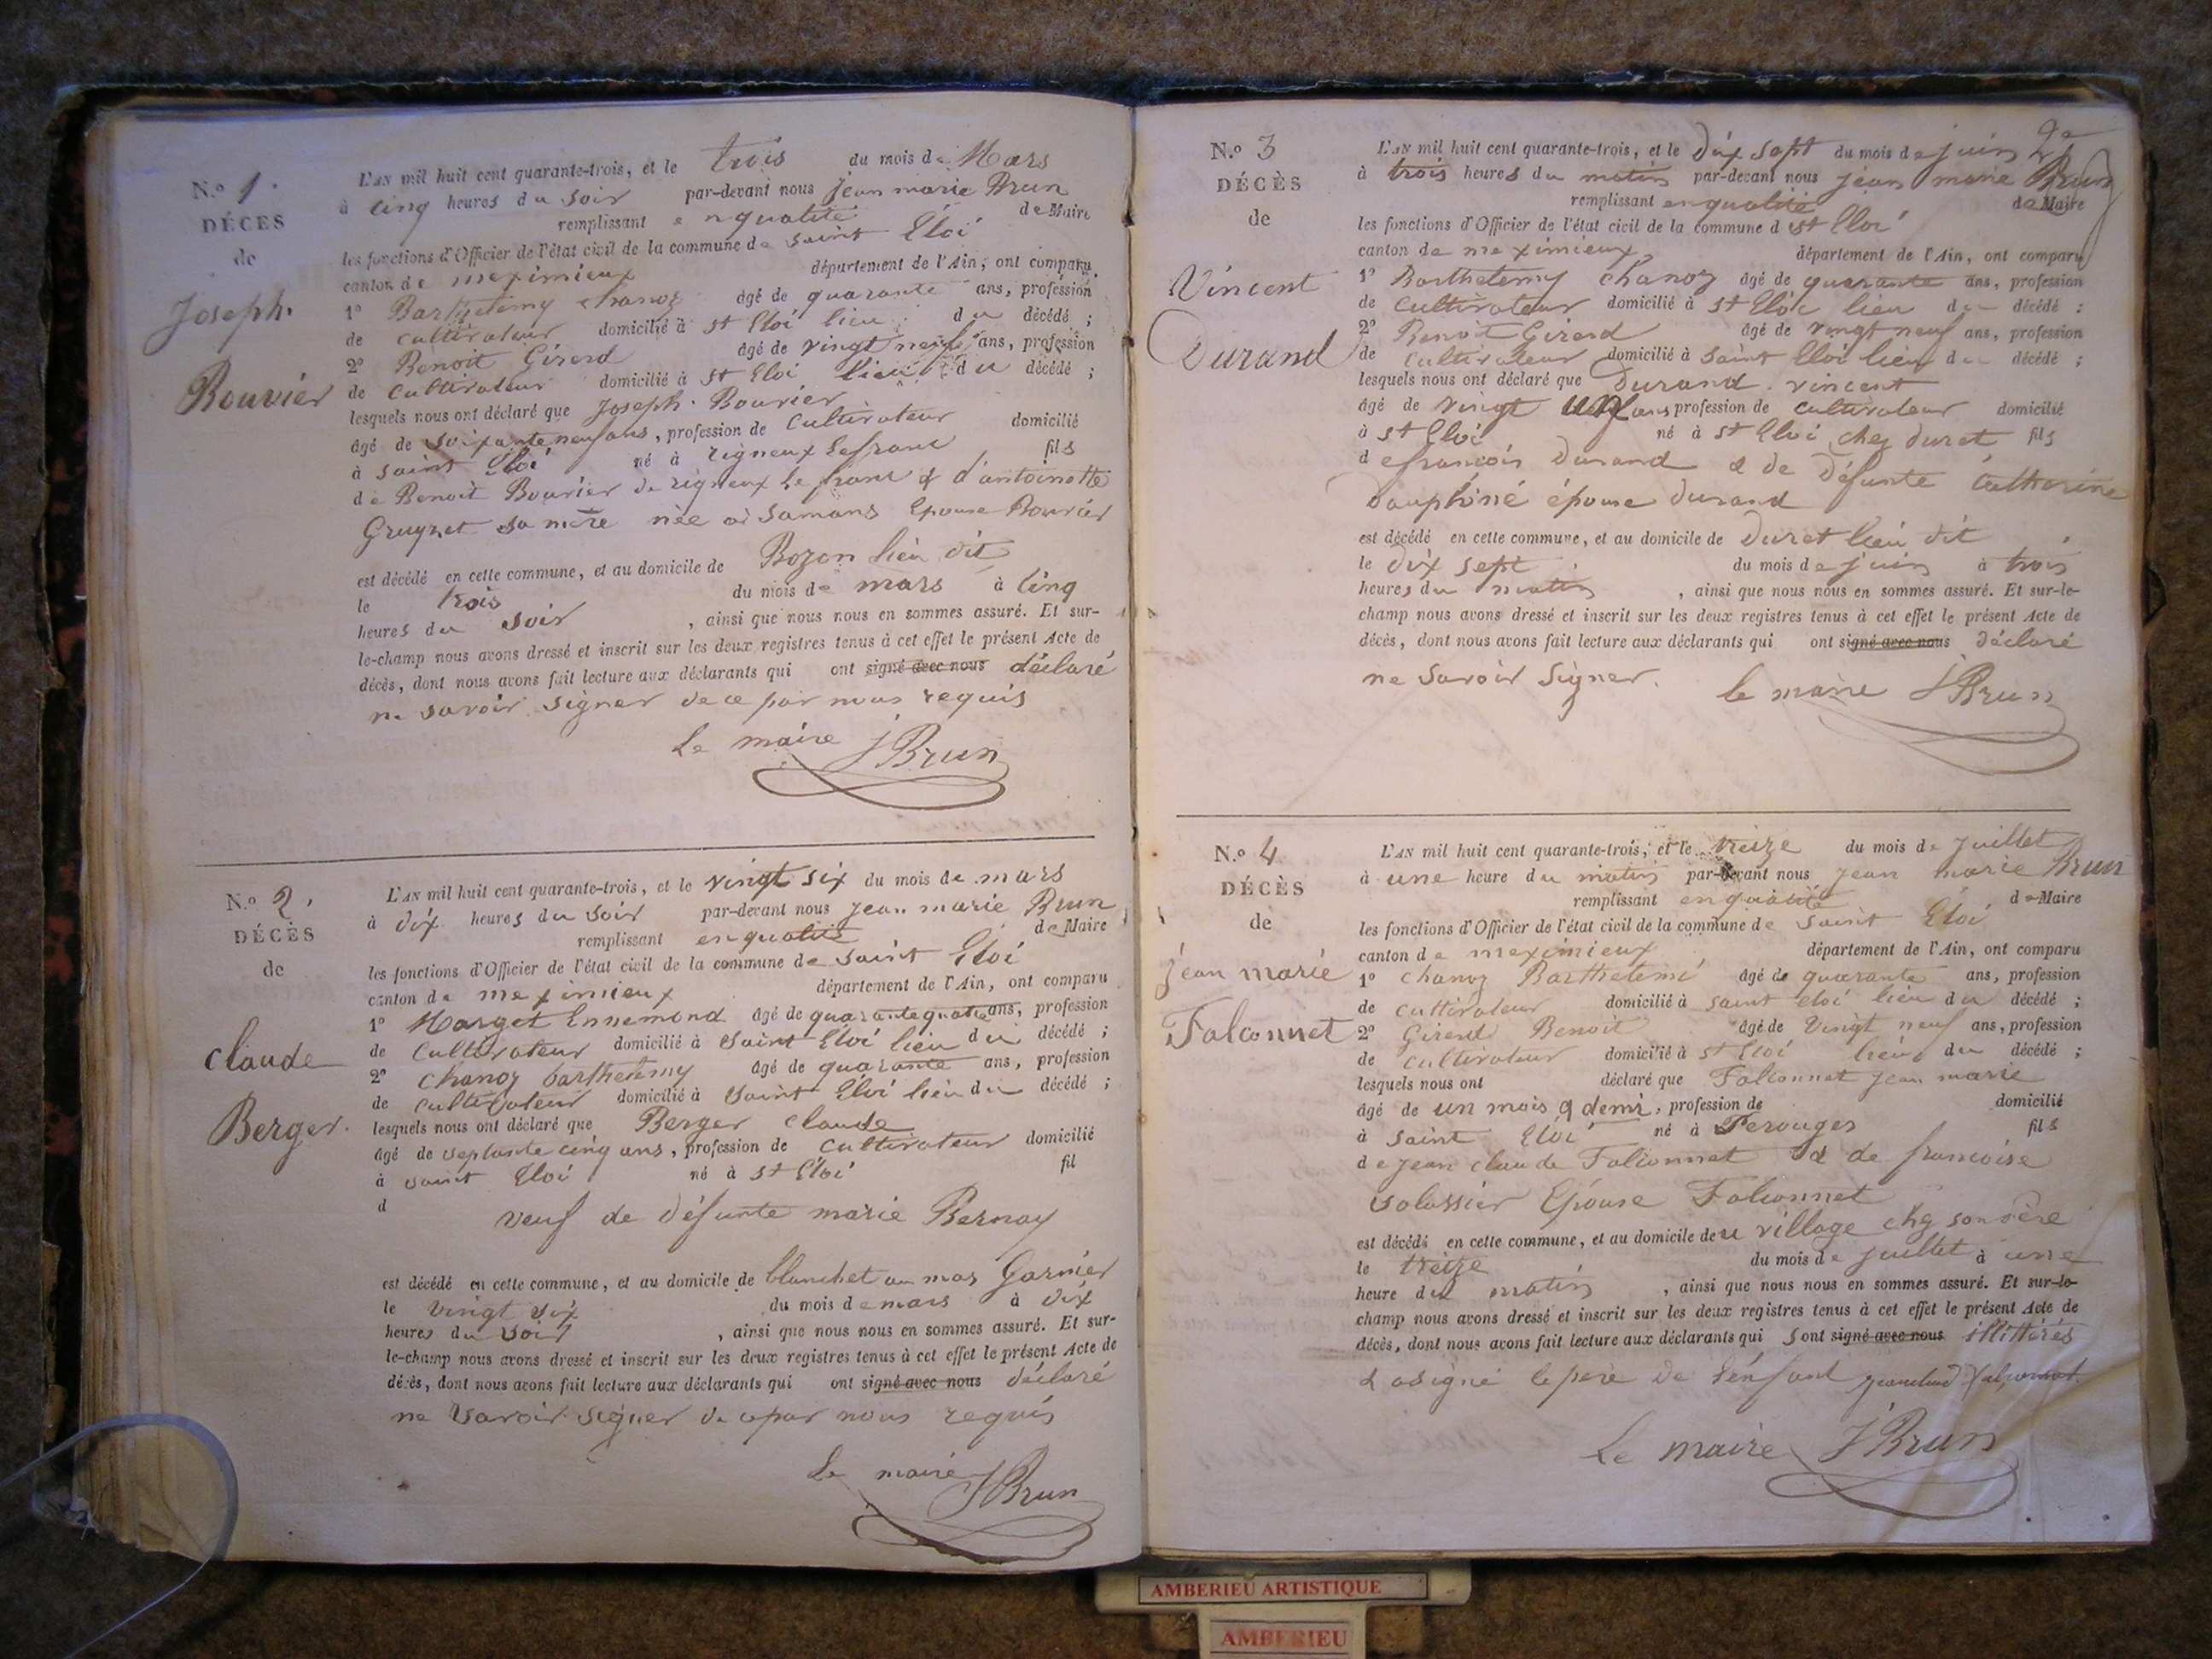 N.º 1.
DÉCÈS
de
Joseph.
Bouvier
L'AN mil huit cent quarante-trois, et le trois du mois de Mars
à cinq heures du soir par-devant nous jean marie Brun
remplissant en qualité de Maire
les fonctions d'Officier de l'état civil de la commune de saint Eloi
canton de meximieux département de l'Ain, ont comparu
1º Barthelemy chanoz âgé de quarante ans, profession
de cultivateur domicilié à st Eloi lieu du décédé ;
2º Benoit Girerd âgé de vingt neuf ans, profession
de cultivateur domicilié à st Eloi lieu du décédé ;
lesquels nous ont déclaré que Joseph. Bouvier
âgé de soixante neuf ans, profession de cultivateur domicilié
à saint Eloi né à rigneux lefranc fils
de Benoit Bouvier de rigneux le franc & d'antoinette
sa mère née à Samans Epouse Bouvier
est décédé en cette commune, et au domicile de Bozon lieu dit
le trois du mois de mars à cinq
heures du soir , ainsi que nous nous en sommes assuré. Et sur-
le-champ nous avons dressé et inscrit sur les deux registres tenus à cet effet le présent Acte de
décès, dont nous avons fait lecture aux déclarants qui ont signé avec nous déclaré
ne savoir signer de ce par nous requis
Le maire J Brun
N.º 2.
DÉCÈS
de
claude
Berger.
L'AN mil huit cent quarante-trois, et le vingt six du mois de mars
à dix heures du soir par-devant nous jean marie Brun
remplissant en qualité de Maire
les fonctions d'Officier de l'état civil de la commune de saint Eloi
canton de meximieux département de l'Ain, ont comparu
1º Marget Ennemond âgé de quarante quatre ans, profession
de cultivateur domicilié à saint Eloi lieu du décédé ;
2º chanoz barthelemy âgé de quarante ans, profession
de cultivateur domicilié à saint Eloi lieu du décédé ;
lesquels nous ont déclaré que Berger claude
âgé de septante cinq ans, profession de cultivateur domicilié
à saint Eloi né à st Eloi fil
d
veuf de défunte marie Bernay
est décédé en cette commune, et au domicile de blanchet au mas Garnier
le vingt six du mois de mars à dix
heures du soir , ainsi que nous nous en sommes assuré. Et sur-
le-champ nous avons dressé et inscrit sur les deux registres tenus à cet effet le présent Acte de
décès, dont nous avons fait lecture aux déclarants qui ont signé avec nous déclaré
ne savoir signer de ce par nous requis
Le maire J Brun
N.º 3
DÉCÈS
de
Vincent
Durand
L'AN mil huit cent quarante-trois, et le dix sept du mois de juin
à trois heures du matin par-devant nous jean marie Brun
remplissant en qualité de Maire
les fonctions d'Officier de l'état civil de la commune d st Eloi
canton de meximieux département de l'Ain, ont comparu
1º Barthelemy chanoz âgé de quarante ans, profession
de cultivateur domicilié à st Eloi lieu du décédé ;
2º Benoit Girerd âgé de vingt neuf ans, profession
de cultivateur domicilié à saint Eloi lieu du décédé ;
lesquels nous ont déclaré que Durand. vincent
âgé de vingt un ans profession de cultivateur domicilié
à st Eloi né à st Eloi chez duret fils
de francois Durand & de Défunte Catherine
Dauphiné épouse durand
est décédé en cette commune, et au domicile de Duret lieu dit
le dix sept du mois de juin à trois
heures du matin , ainsi que nous nous en sommes assuré. Et sur-le-
champ nous avons dressé et inscrit sur les deux registres tenus à cet effet le présent Acte de
décès, dont nous avons fait lecture aux déclarants qui ont signé avec nous déclaré
ne savoir signer. le maire J Brun
N.º 4
DÉCÈS
de
jean marie
Falconnet
L'AN mil huit cent quarante-trois, et le treize du mois de juillet
à une heure du matin par-devant nous jean marie Brun
remplissant en qualité de Maire
les fonctions d'Officier de l'état civil de la commune de saint Eloi
canton de meximieux département de l'Ain, ont comparu
1º chanoz Barthelemi âgé de quarante ans, profession
de cultivateur domicilié à saint eloi lieu du décédé ;
2º Girerd Benoit âgé de vingt neuf ans, profession
de cultivateur domicilié à st Eloi lieu du décédé ;
lesquels nous ont déclaré que Falconnet jean marie
âgé de un mois & demi, profession de domicilié
à saint Eloi né à Perouges fils
de jean claude Falconnet & de francoise
Epouse Falconnet
est décédé en cette commune, et au domicile de au village chez son père
le treize du mois de juillet à une
heure du matin , ainsi que nous nous en sommes assuré. Et sur-le-
champ nous avons dressé et inscrit sur les deux registres tenus à cet effet le présent Acte de
décès, dont nous avons fait lecture aux déclarants qui sont signé avec nous illittérés
& a signé le père de l'enfant jeanclaud falconnet
Le maire J Brun
AMBERIEU ARTISTIQUE
AMBERIEU